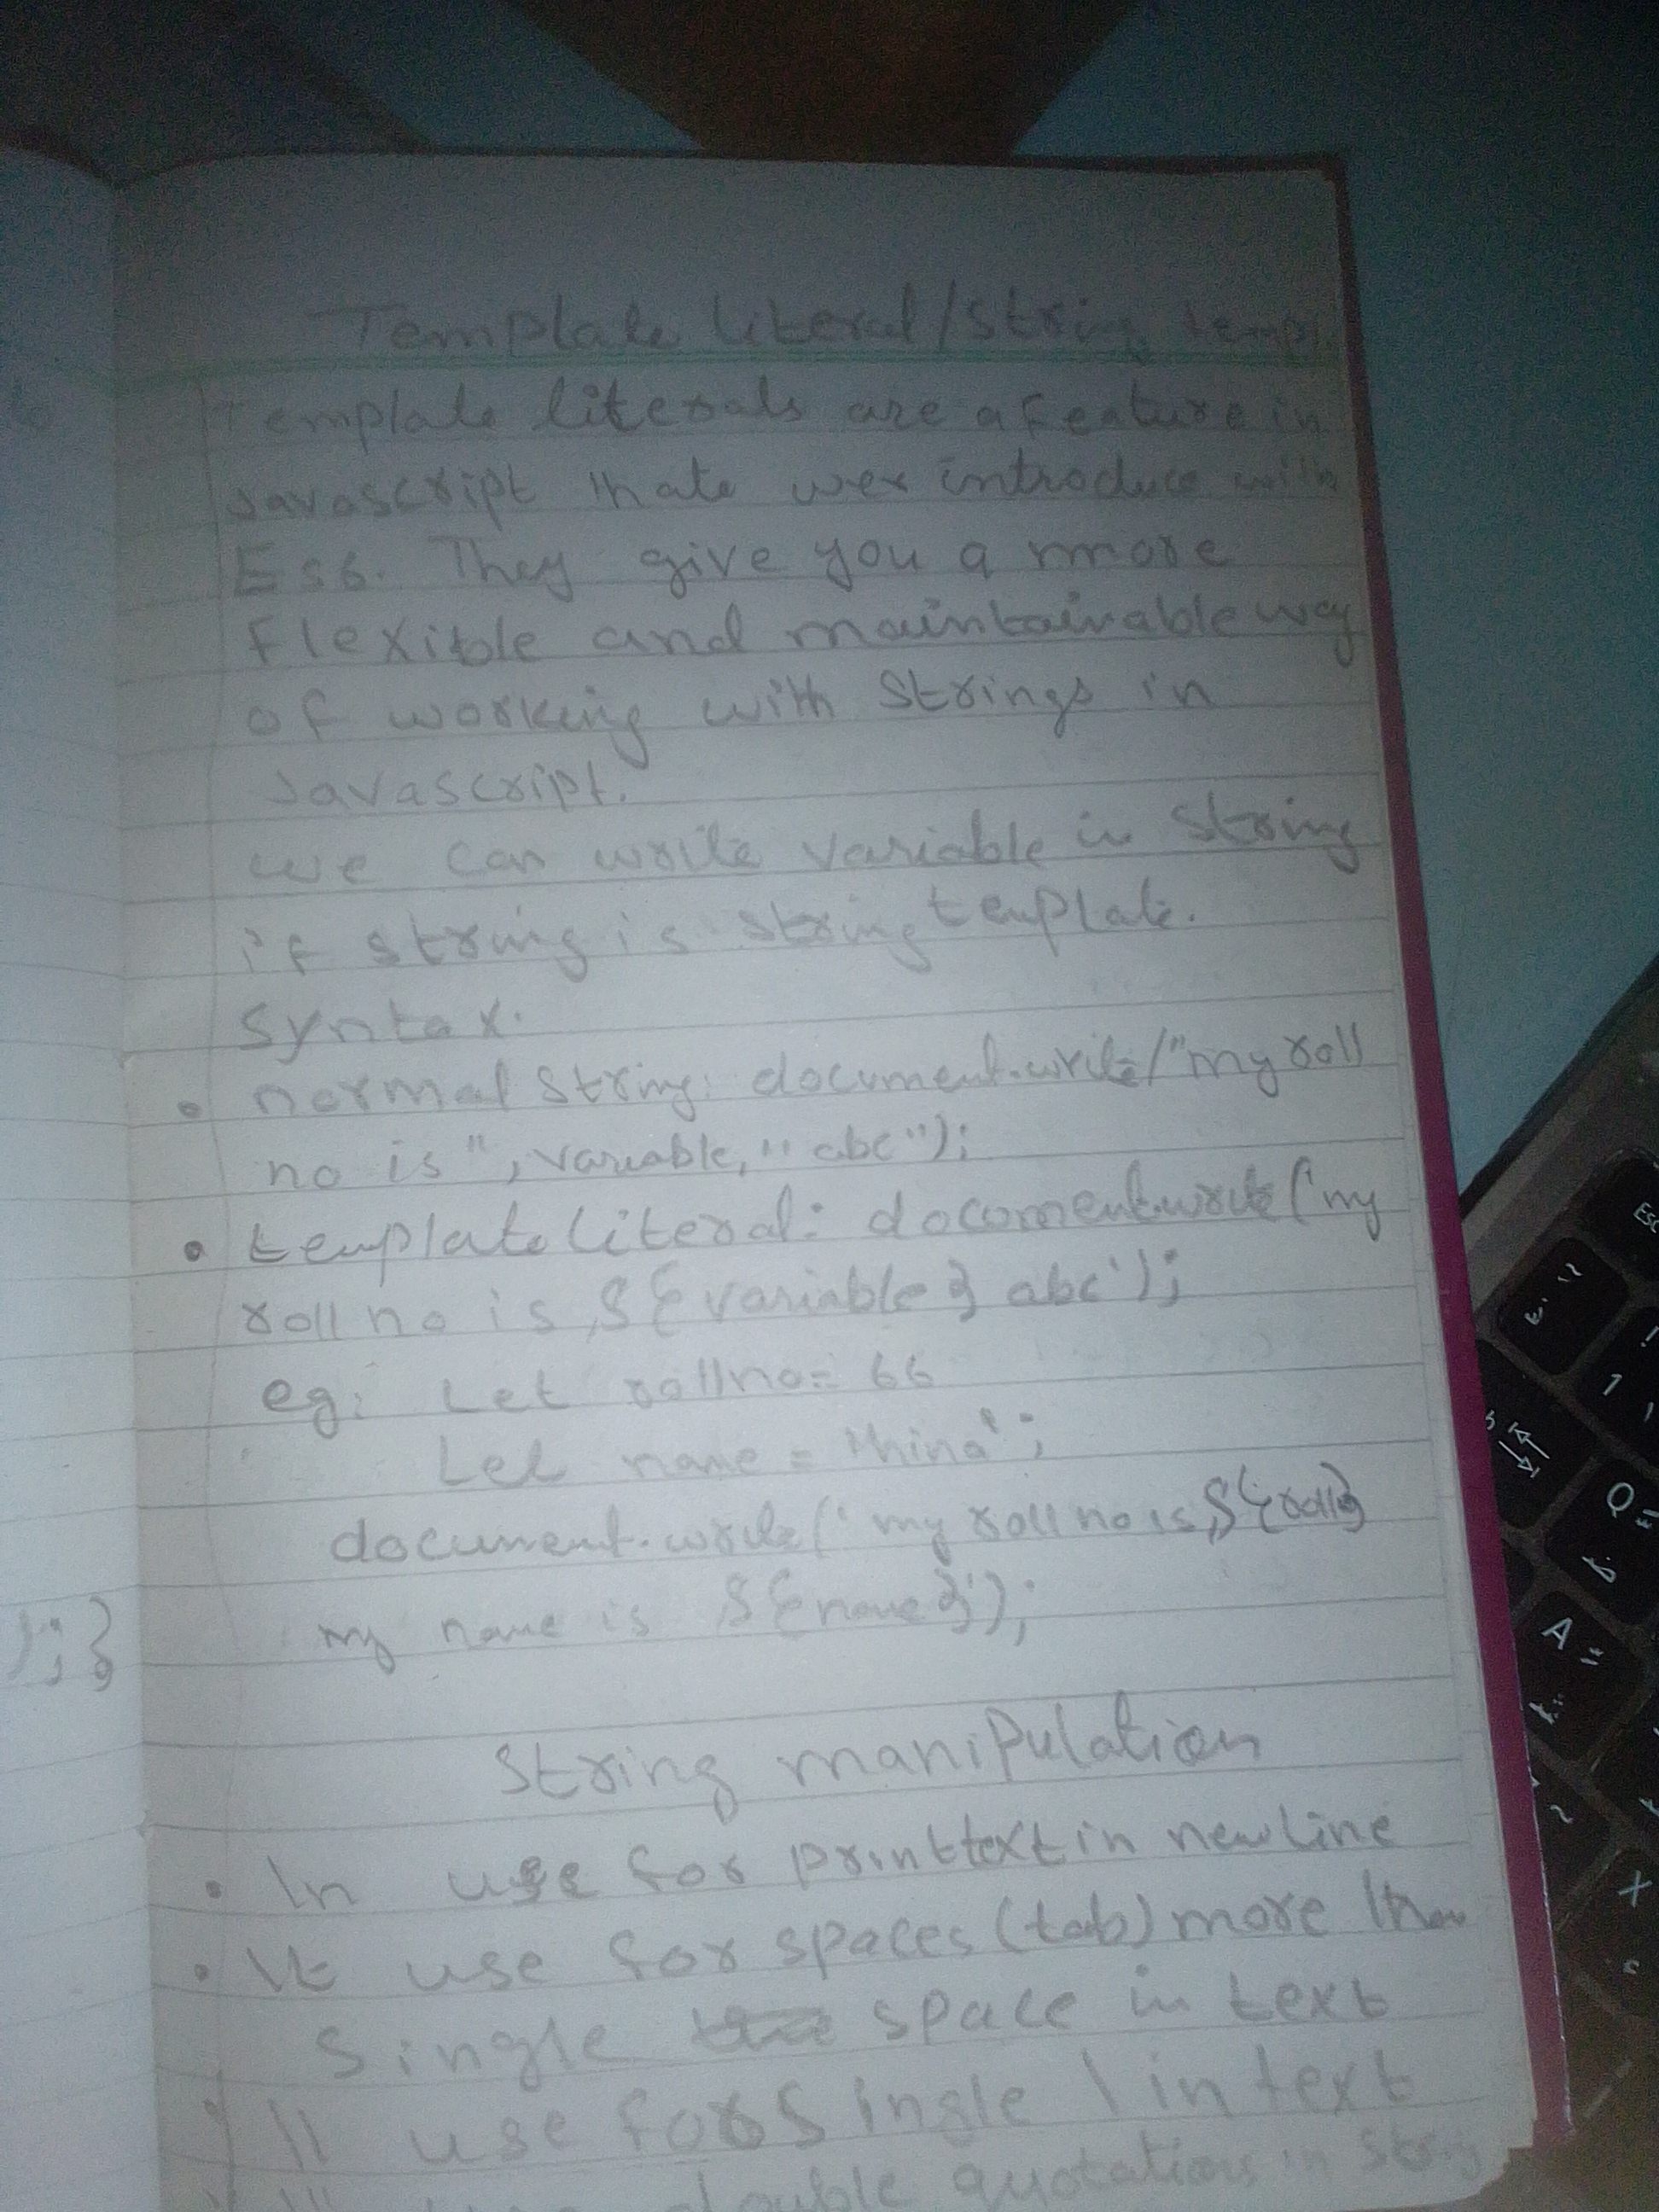 Template literal/string templ
Template literals are a feature in
Javascript thate wer introduce with
Es6. They give you a more
flexible and maintainable way
of working with strings in
Javascript.
we can write variable in string
if string is string template.
Syntax.
• normal string: document.write("my roll
no is", variable, "abc");
• template literal: document.write('my
roll no is, ${variable} abc');
eg: Let rollno= 66
Let name = 'hina';
document.write('my roll no is, ${roll}
my name is ${name}');
);}
String manipulation
• \n use for print text in new line
• \t use for spaces (tab) more than
single space in text
• \\ use for single \ in text
double quotations in string
Esc
!
1
Q
A
X